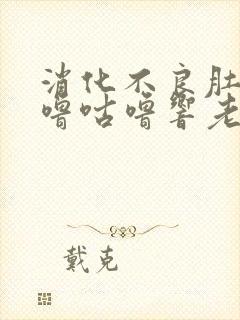 消化不良肚
噜咕噜响老
戴克